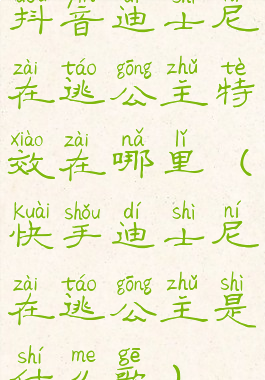 抖音迪士尼
zài táo gōng zhǔ tè
在逃公主特
xiào zài nǎ lǐ
效在哪里（
kuài shǒu dí shì ní
快手迪士尼
zài táo gōng zhǔ shì
在逃公主是
shí me gē
什么歌）